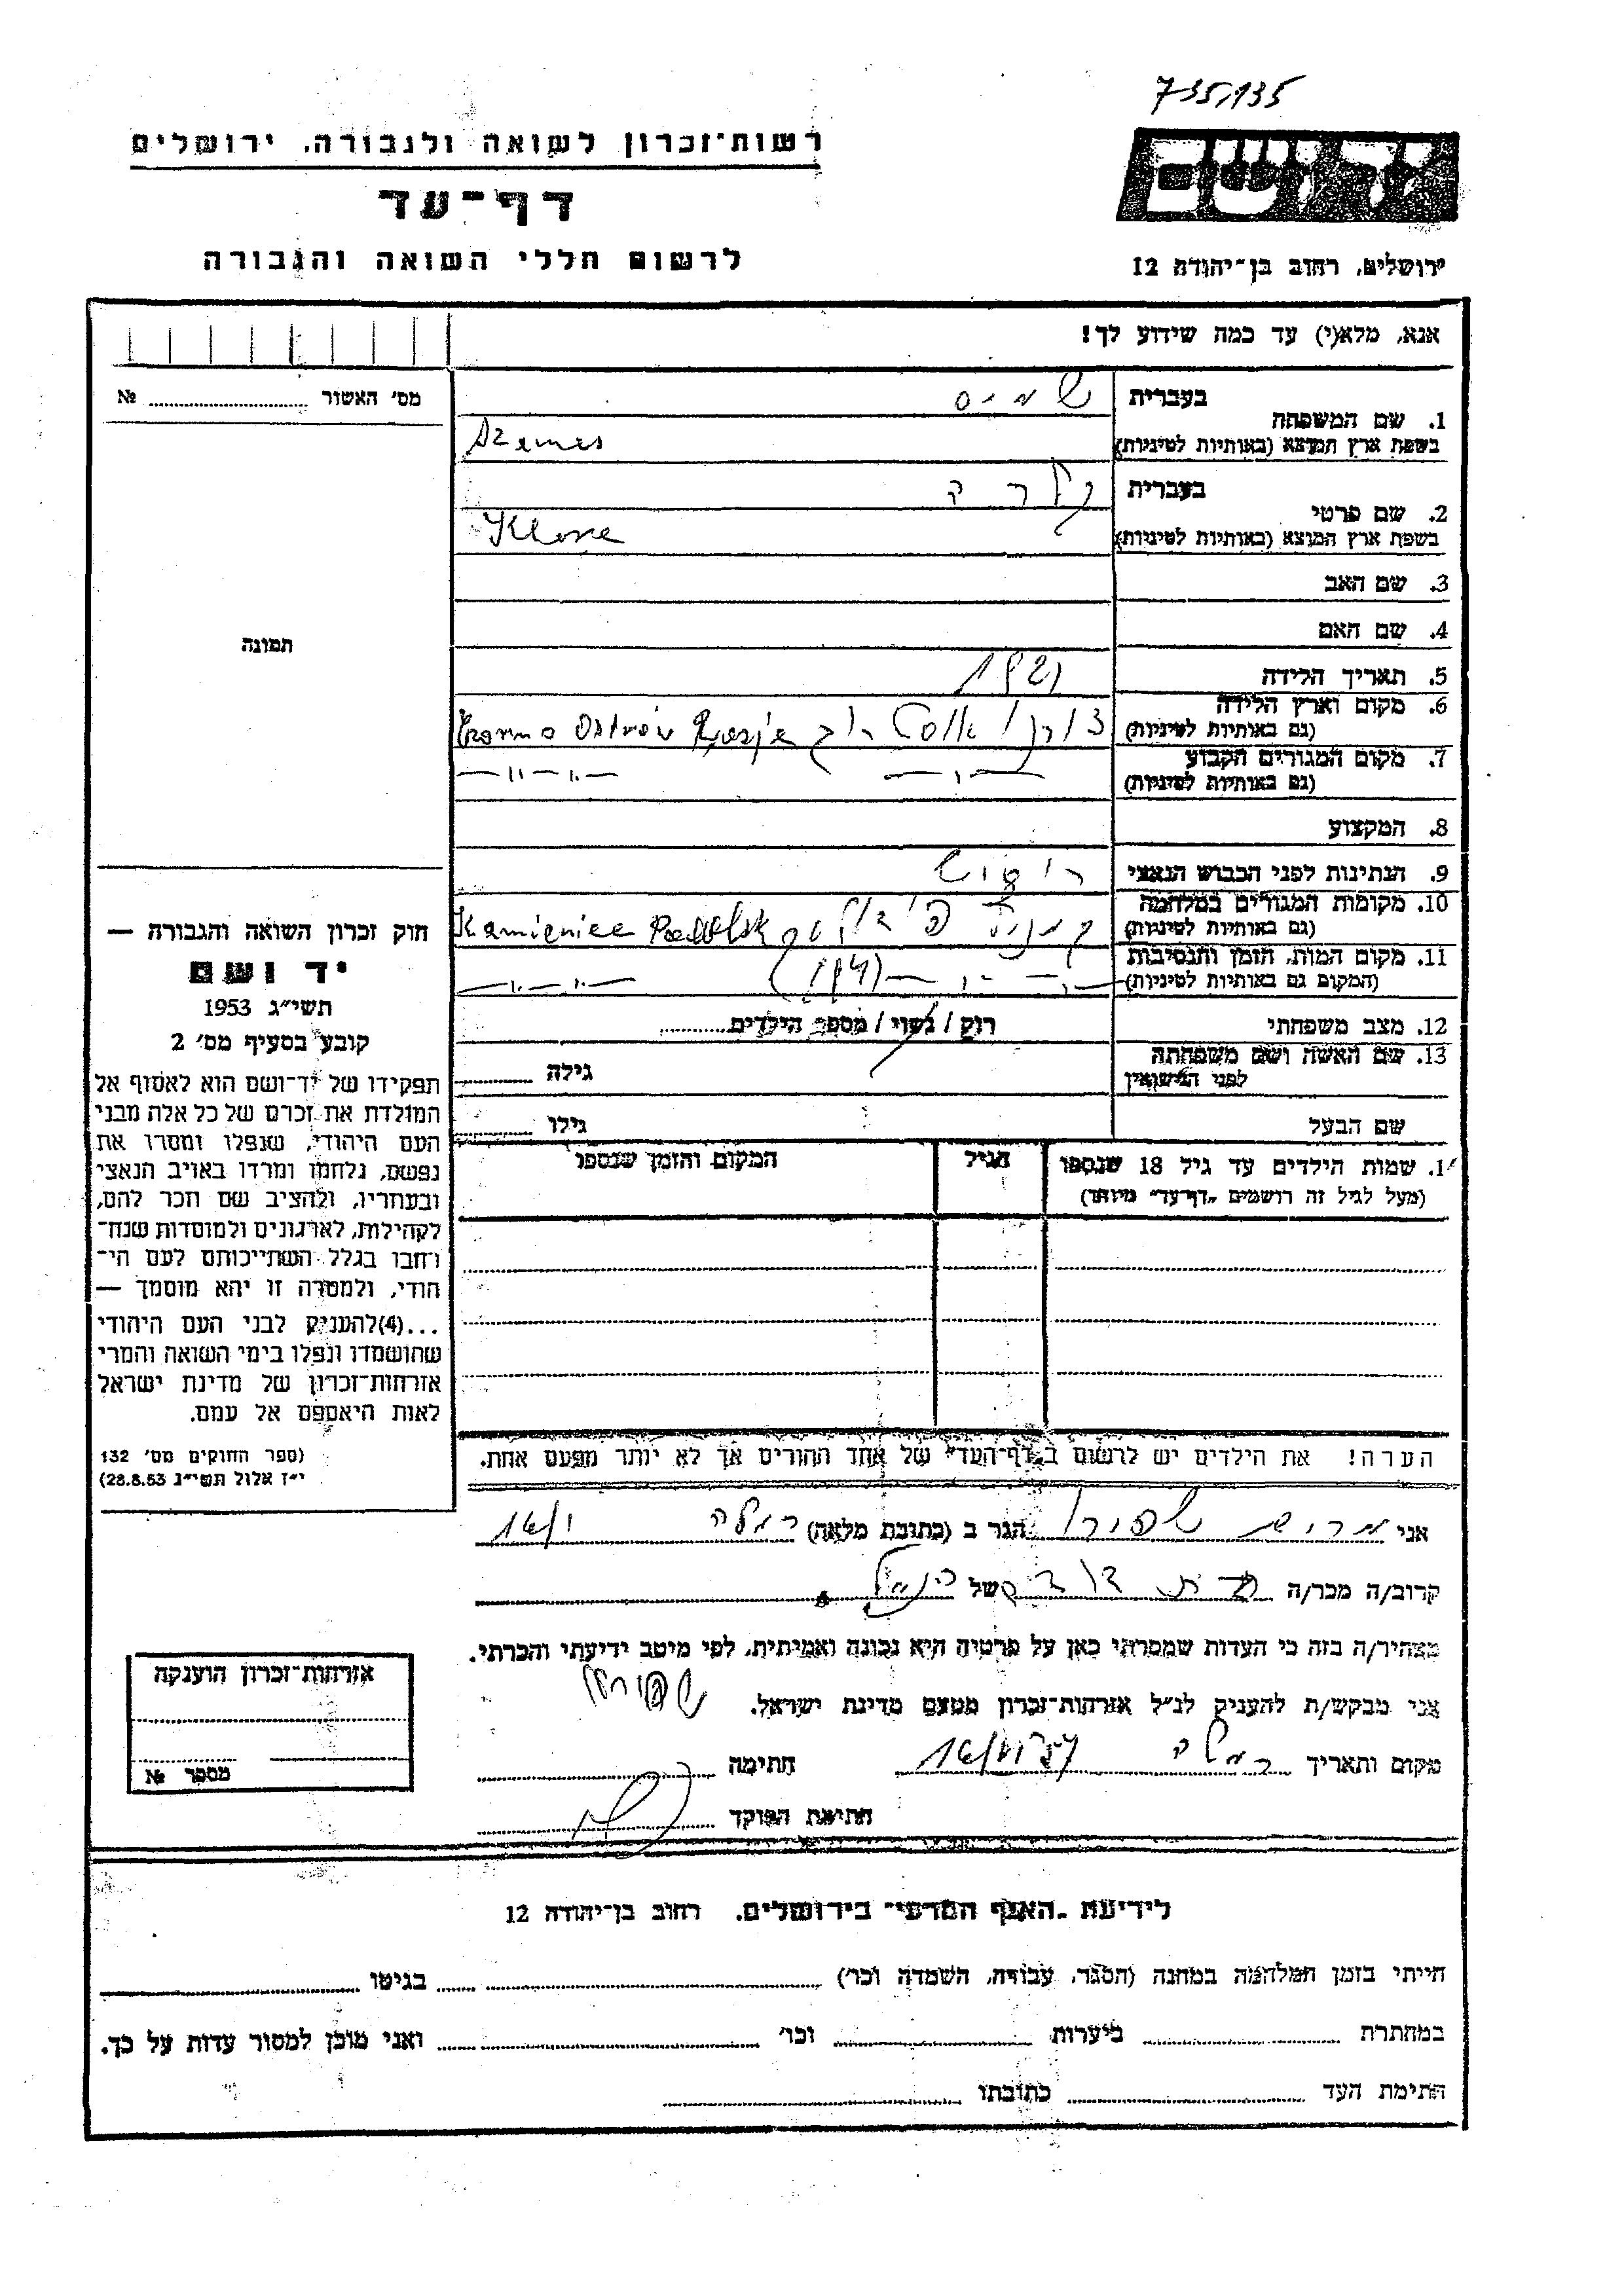 735/135
רשות־זכרון לשואה ולגבורה, ירושלים
יד ושם
דף־עד
לרשום חללי השואה והגבורה
ירושלים, רחוב בן־יהודה 12
אנא, מלא(י) עד כמה שידוע לך!
מס׳ האשור № 
בעברית
1. שם המשפחה
בשפת ארץ המוצא (באותיות לטיניות)
שמיס
Szemes
בעברית
2. שם פרטי
בשפת ארץ המוצא (באותיות לטיניות)
קלרה
Klara
3. שם האב
4. שם האם
תמונה
5. תאריך הלידה 1921
6. מקום וארץ הלידה
(גם באותיות לטיניות)
Ostrów Rosja
7. מקום המגורים הקבוע
(גם באותיות לטיניות)
—"—"—
8. המקצוע
9. הנתינות לפני הכבוש הנאצי
10. מקומות המגורים במלחמה
(גם באותיות לטיניות)
Kamieniec Podolsk
11. מקום המות, הזמן והנסיבות
(המקום גם באותיות לטיניות)
(1941) —"—"—
12. מצב משפחתי רווק / נשוי / מספר הילדים
13. שם האשה ושם משפחתה
לפני הנישואין
גילה
שם הבעל גילו
1. שמות הילדים עד גיל 18 שנספו
(מעל לגיל זה רושמים „דף־עד” מיוחד)
הגיל
המקום והזמן שנספו
חוק זכרון השואה והגבורה —
יד ושם
תשי״ג 1953
קובע בסעיף מס׳ 2
תפקידו של יד־ושם הוא לאסוף אל
המולדת את זכרם של כל אלה מבני
העם היהודי, שנפלו ומסרו את
נפשם, נלחמו ומרדו באויב הנאצי
ובעוזריו, ולהציב שם וזכר להם,
לקהילות, לארגונים ולמוסדות שנח־
רבו בגלל השתייכותם לעם הי־
הודי, ולמטרה זו יהא מוסמך —
...(4)להעניק לבני העם היהודי
שהושמדו ונפלו בימי השואה והמרי
אזרחות־זכרון של מדינת ישראל
לאות היאספם אל עמם.
(ספר החוקים מס׳ 132
י״ז אלול תשי״ג 28.8.53)
הערה! את הילדים יש לרשום ב„דף־העד” של אחד ההורים אך לא יותר מפעם אחת.
אני שפירא הגר ב (כתובת מלאה) רמלה
קרוב/ה מכר/ה בת דודה של הנ״ל
מצהיר/ה בזה כי העדות שמסרתי כאן על פרטיה היא נכונה ואמיתית, לפי מיטב ידיעתי והכרתי.
אני מבקש/ת להעניק לנ״ל אזרחות־זכרון מטעם מדינת ישראל.
מקום ותאריך רמלה חתימה
חתימת הפוקד
אזרחות־זכרון הוענקה
מספר №
לידיעת „האגף המדעי” בירושלים, רחוב בן־יהודה 12
הייתי בזמן המלחמה במחנה (הסגר, עבודה, השמדה וכו׳) בגיטו
במחתרת ביערות וכו׳ ואני מוכן למסור עדות על כך.
חתימת העד כתובתו